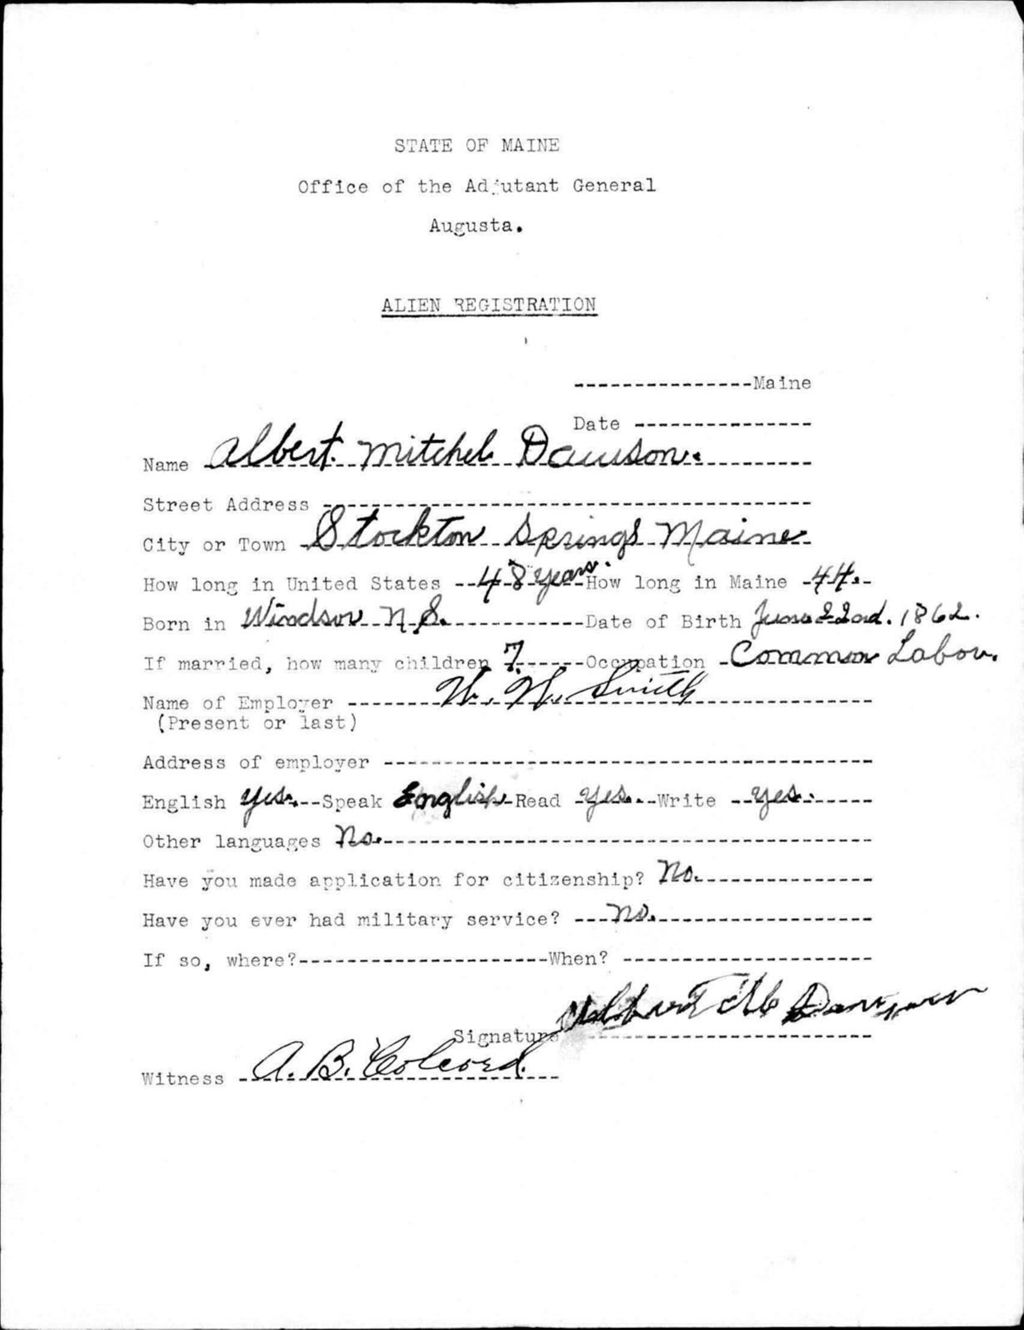 STATE OF MAINE
Office of the Adjutant General
Augusta.
ALIEN REGISTRATION
---------------Maine
Date ---------------
Name Albert Mitchel Dawson.
Street Address ---------------
City or Town Stockton Springs Maine
How long in United States --48 years.--How long in Maine -44.-
Born in Windsor N.S.------------Date of Birth June 22nd. 1862.
If married, how many children 7.------Occupation -Common Labor.
Name of Employer --------W. H. Smith---------------
(Present or last)
Address of employer ---------------
English yes.--Speak English-Read -yes.--Write --yes.-----
Other languages No.---------------
Have you made application for citizenship? No.---------------
Have you ever had military service? ---No.---------------
If so, where?---------------------When? ---------------------
Signature Albert M Dawson
Witness --A. B. Colcord.--